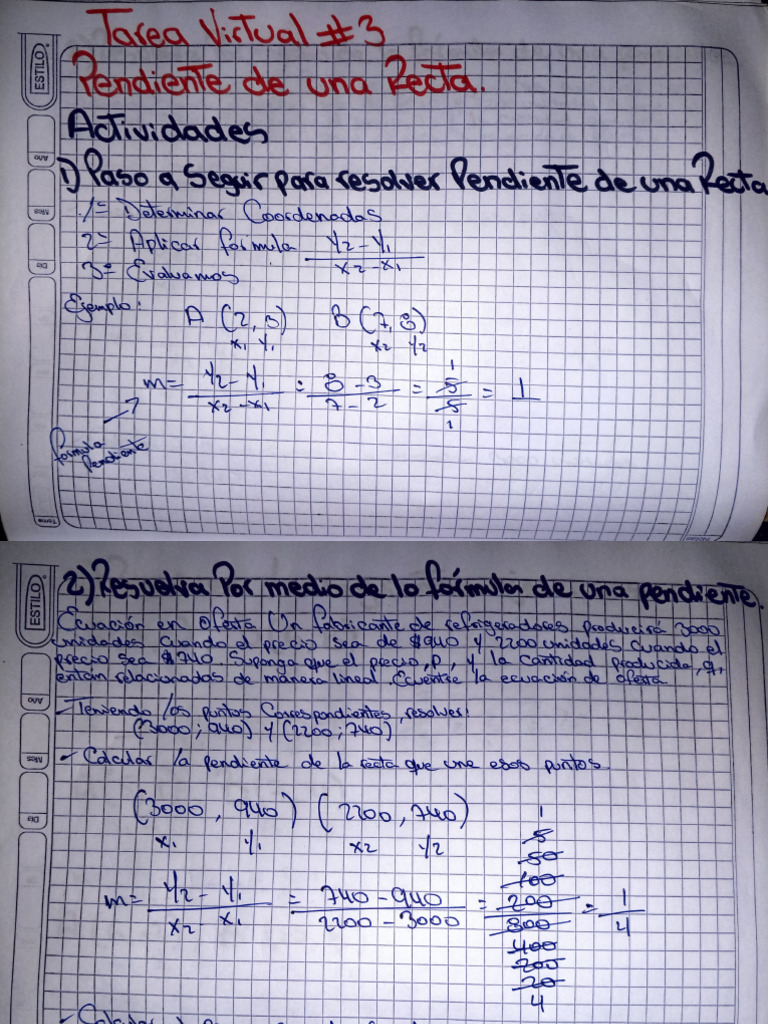 Tarea Virtual #3
Pendiente de una Recta.
Actividades
1) Paso a Seguir para resolver Pendiente de una Recta
1= Determinar Coordenadas
2= Aplicar formula y2 - y1 / x2 - x1
3= Evaluamos
Ejemplo: A (2, 3) B (7, 8)
x1 y1 x2 y2
m= y2 - y1 / x2 - x1 = 8 - 3 / 7 - 2 = 5 / 5 = 1
1
1
formula
Pendiente
ESTILO
Año
Mes
Dia
Tema
2) Resuelva Por medio de la fórmula de una pendiente.
Ecuación en oferta Un fabricante de refrigeradores producirá 3000
unidades cuando el precio sea de $940 y 2200 unidades cuando el
precio sea $740. Suponga que el precio, p, y la cantidad producida, q,
están relacionadas de manera lineal. la ecuación de oferta
- Teniendo los puntos Correspondientes, resolver:
(3000; 940) y (2200; 740)
- Calcular la pendiente de la recta que une esos puntos
(3000, 940) (2200, 740)
x1 y1 x2 y2
m= y2 - y1 / x2 - x1 = 740 - 940 / 2200 - 3000 = 200 / 800 = 1 / 4
1
5
50
100
400
200
20
4
ESTILO
Año
Mes
Dia